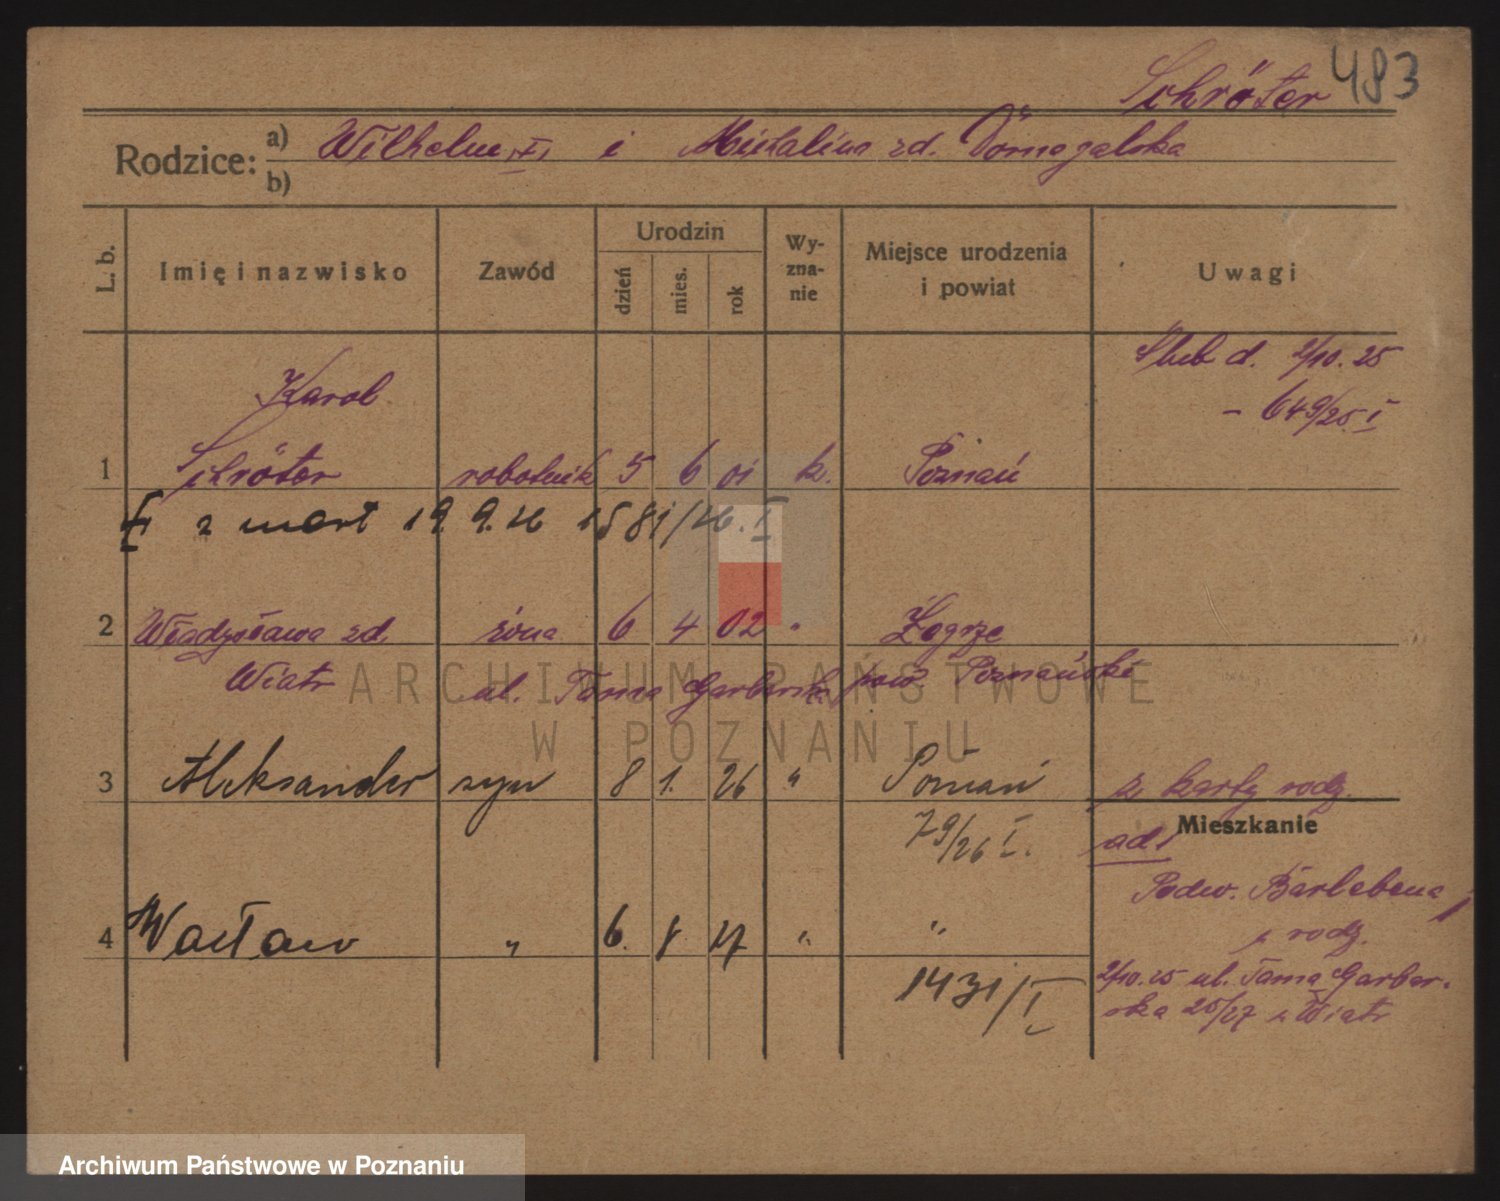 Schröter 483
Rodzice: a) Wilhelm i Michalina zd. Domagalska
b)
L. b. Imię i nazwisko Zawód Urodzin dzień mies. rok Wy-zna-nie Miejsce urodzenia i powiat Uwagi
Ślub d. 2/10. 25
- 649/25 I
Karol
1 Schröter robotnik 5 6 01 k. Poznań
zmarł 19. 9. 26 1581/26. I
2 Władysława zd. żona 6 4 02 " Żegrze
Wiatr ul. Tama Garbarska pow. Poznański
ARCHIWUM PAŃSTWOWE
W POZNANIU
3 Aleksander syn 8 1. 26 " Poznań z karty rodz.
79/26 I. Mieszkanie
ad 1
Podw. Barlebena
u rodz.
4 Wacław " 6. 8 27 " "
1431/I
2/10.25 ul. Tama Garbar-
ska 25/27 u Wiatr
Archiwum Państwowe w Poznaniu